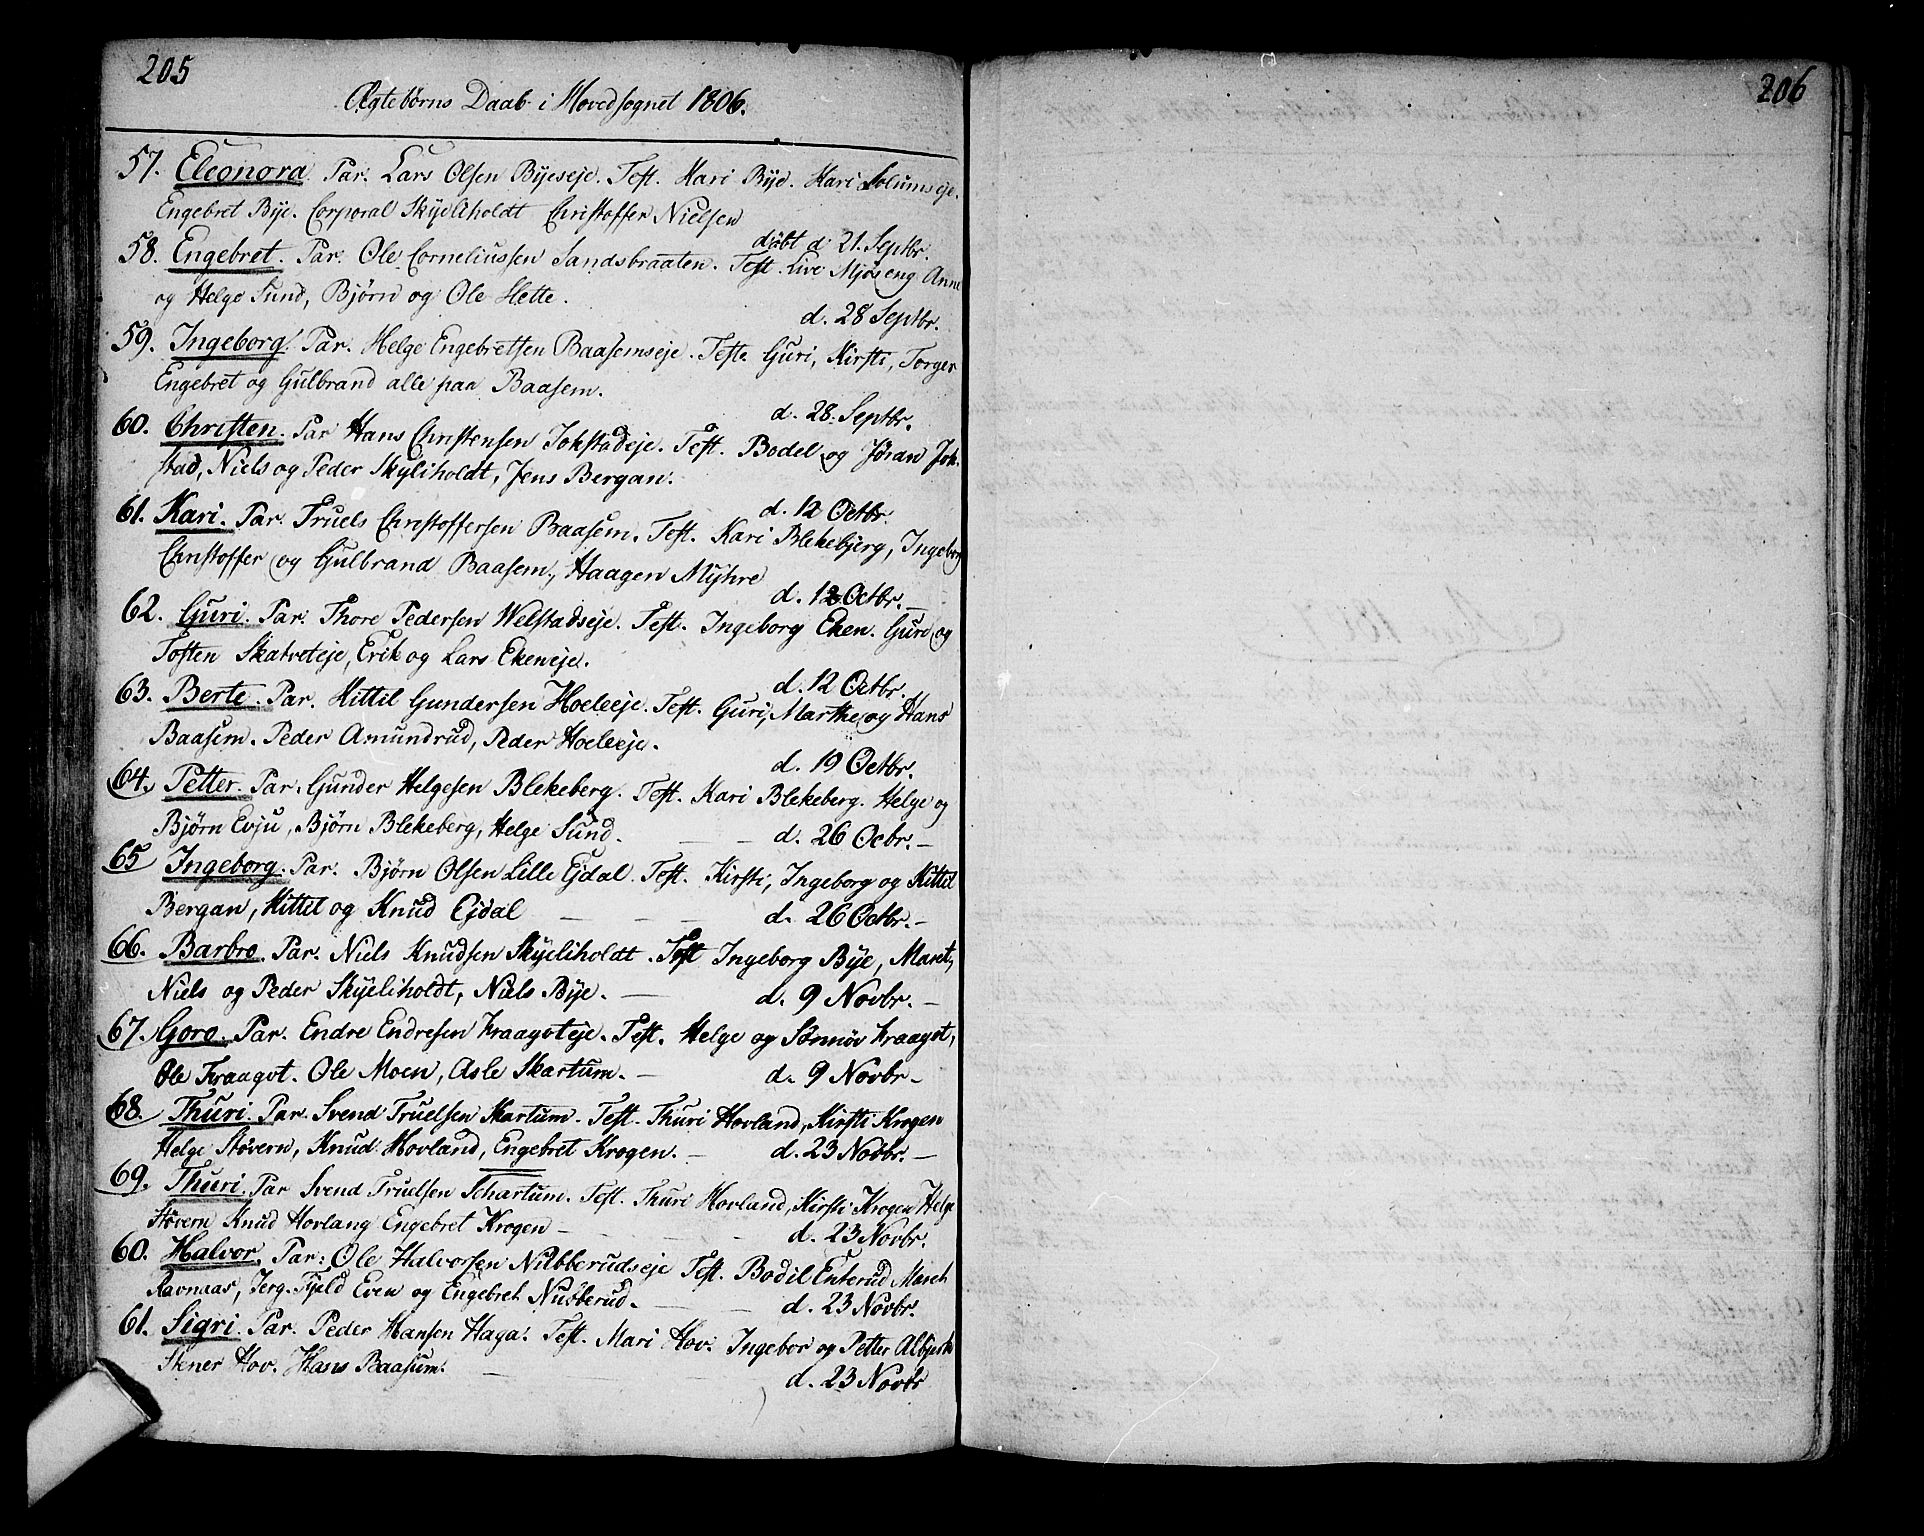 205
Ægtebørns Daab i Hovedsognet 1806.
57. Eleonora. Par. Lars Olsen Byeseje. Test. Kari Bye. Kari Solumseje.
Engebret Bye. Corporal Skyeliholdt Christoffer Nielsen
døbt d. 21. Septbr.
58. Engebret. Par. Ole Corneliussen Sandsbraaten. Test. Live Mjøseng Anne
og Helge Sund, Bjørn og Ole Slette.
d. 28 Septbr.
59. Ingeborg. Par. Helge Engebretsen Baasemseje. Test. Guri, Kirsti, Torger
Engebret og Gulbrand alle paa Baasem.
d. 28. Septbr.
60. Christen. Par Hans Christensen Jokstadeje. Test. Bodel og Jøran Jok-
stad, Niels og Peder Skyliholdt, Jens Bergan.
d. 12 Octbr.
61. Kari. Par. Truels Christoffersen Baasem. Test. Kari Blekebjerg, Ingeborg
Christoffer og Gulbrand Baasem, Haagen Myhre
d. 12 Octbr.
62. Guri. Par. Thore Pedersen Welstadseje. Test. Ingeborg Eken. Guri og
Tosten Skatveteje, Erik og Lars Ekeneje.
d. 12 Octbr.
63. Berte. Par. Kittil Gundersen Hoeleeje. Test. Guri, Marthe og Hans
Baasem. Peder Amundrud, Peder Hoeleeje.
d. 19 Octbr.
64. Petter. Par. Gunder Helgesen Blekeberg. Test. Kari Blekeberg. Helge og
Bjørn Evju, Bjørn Blekeberg, Helge Sund. d. 26 Ocbr.
65 Ingeborg. Par. Bjørn Olsen Lille Ejdal. Test. Kirsti, Ingeborg og Kittil
Bergan, Kittil og Knud Ejdal d. 26 Octbr.
66. Barbro. Par. Niels Knudsen Skyeliholdt. Test Ingeborg Bye, Maret,
Niels og Peder Skyeliholdt, Niels Bye. d. 9 Novbr.
67. Goro. Par. Endre Endresen Kraagvteje. Test. Helge og Sønnøv Kraagvt,
Ole Kraagvt. Ole Moen, Asle Skartum. d. 9 Novbr.
68. Thuri. Par. Svend Truelsen Skartum. Test. Thuri Hovland, Kirsti Krogen
Helge Støvern, Knud Hovland, Engebret Krogen. d. 23 Novbr.
69. Thuri. Par Svend Truelsen Schartum. Test. Thuri Hovland, Kirsti Krogen Helge
Støvern Knud Hovlang Engebret Krogen d. 23 Novbr.
60. Halvor. Par. Ole Halvorsen Nubberudseje Test. Bodil Enterud Maret
Ravnaas, Jerg. Fjeld Even og Engebret Nubberud. d. 23 Novbr.
61. Sigri. Par. Peder Hansen Haga. Test. Mari Hov. Ingebor og Petter Albjerk
Stener Hov. Hans Baasum. d. 23 Novbr
206